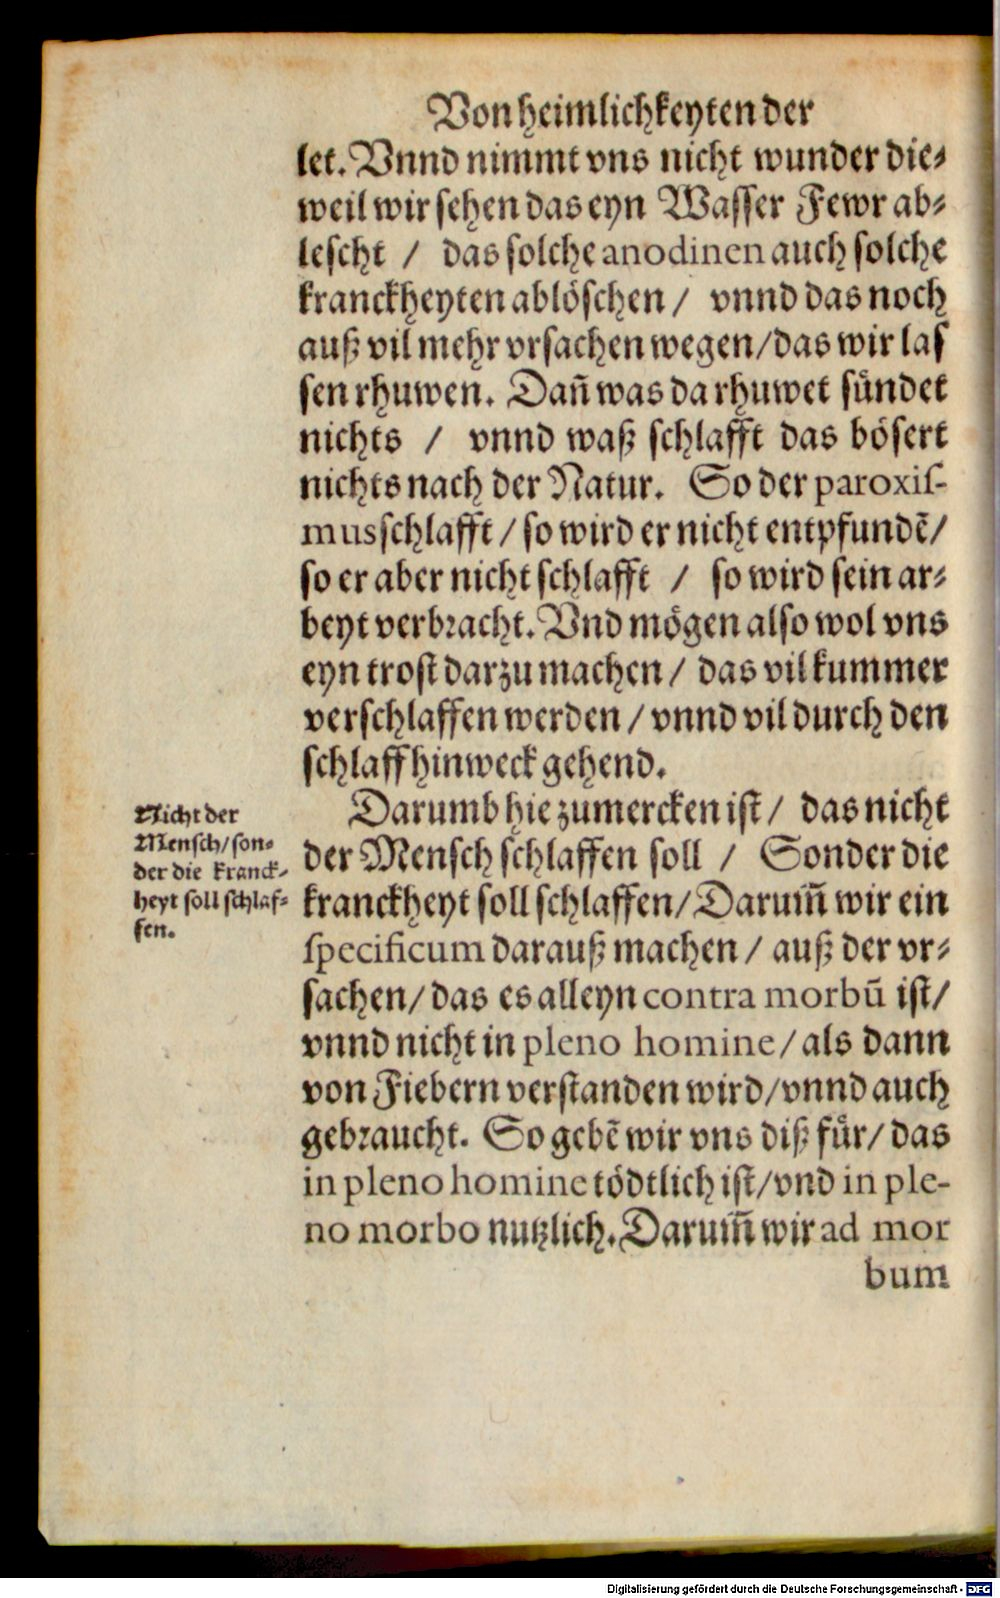 Von heimlichkeyten der
let. Vnnd nimmt vns nicht wunder die-
weil wir sehen das eyn Wasser Fewr ab-
lescht / das solche anodinen auch solche
kranckheyten ablöschen / vnnd das noch
auß vil mehr vrsachen wegen / das wir las
sen rhuwen. Dañ was da rhuwet sündet
nichts / vnnd waß schlafft das bösert
nichts nach der Natur. So der paroxis-
mus schlafft / so wird er nicht entpfundẽ /
so er aber nicht schlafft / so wird sein ar-
beyt verbracht. Vnd mögen also wol vns
eyn trost darzu machen / das vil kummer
verschlaffen werden / vnnd vil durch den
schlaff hinweck gehend.
Darumb hie zumercken ist / das nicht
der Mensch schlaffen soll / Sonder die
kranckheyt soll schlaffen / Darum̃ wir ein
specificum darauß machen / auß der vr-
sachen / das es alleyn contra morbũ ist /
vnnd nicht in pleno homine / als dann
von Fiebern verstanden wird / vnnd auch
gebraucht. So gebẽ wir vns diß für / das
in pleno homine tödtlich ist / vnd in ple-
no morbo nutzlich. Darum̃ wir ad mor
bum
Nicht der
Mensch / son-
der die kranck-
heyt soll schlaf-
fen.
Digitalisierung gefördert durch die Deutsche Forschungsgemeinschaft - DFG